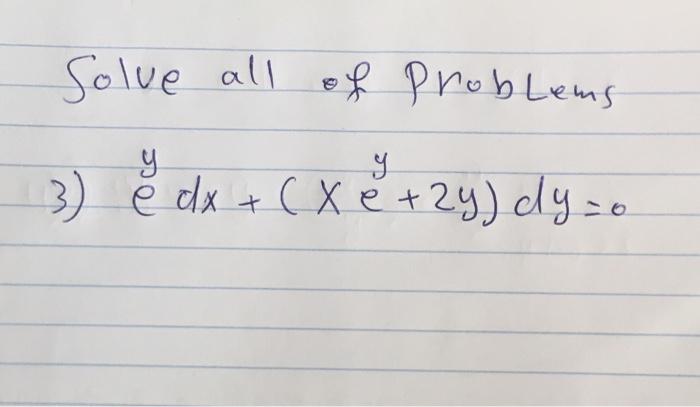 Solve all of Problems
3) e^y dx + (x e^y + 2y) dy = 0